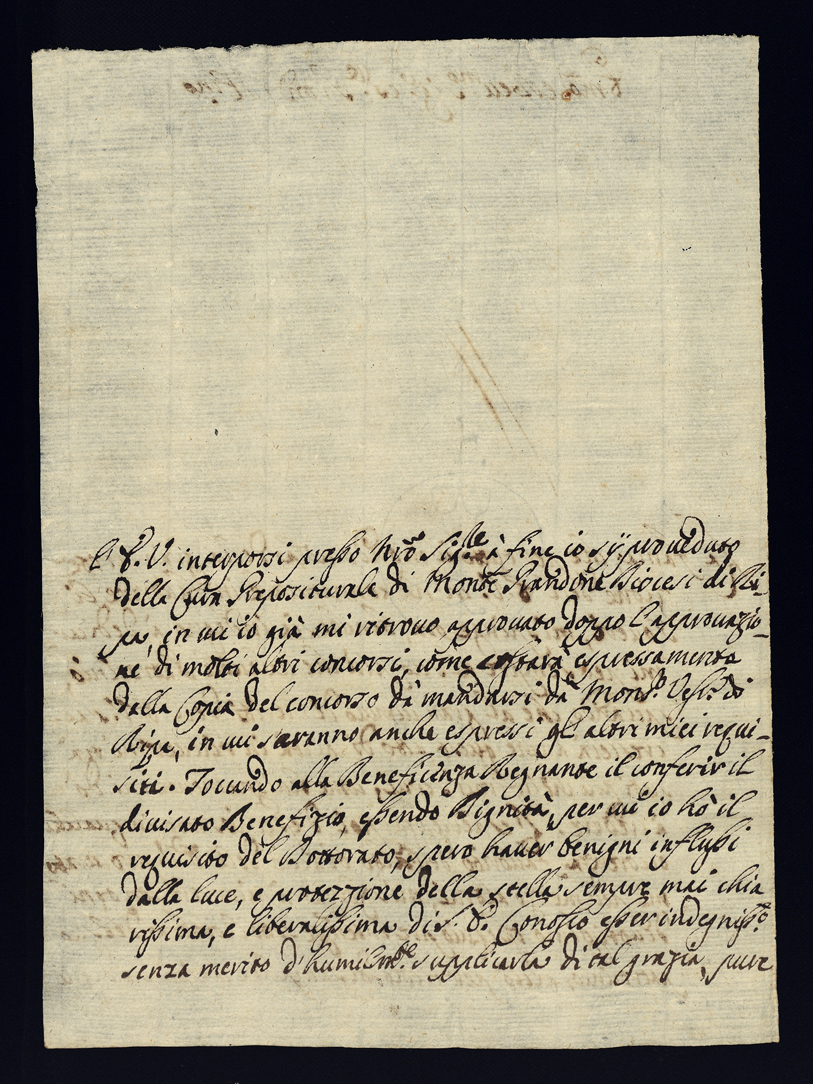 V. interporsi presso Nrõ Sig.re à fine io sÿ proveduto
della Cura Prepositurale di Monte Prandone Diocesi di Ri-
pa, in cui io già mi ritrovo approvato doppo l'approvazio-
ne di molti altri concorsi, come costarà espressamente
dalla Copia del concorso dà mandarsi dà Mons.r Vesc.o di
Ripa, in cui saranno anche espressi gl'altri miei requi-
siti. Toccando alla Beneficenza Regnante il conferir il
divisato Benefizio, essendo Dignità, per cui io hò il
requisito del Dottorato, spero haver benigni influssi
dalla luce, e protezzione della stella sempre mai chia
rissima, e liberalissima di Conosco esser indegniss.o
senza merito d'humilm.te supplicarla di tal grazia, pure